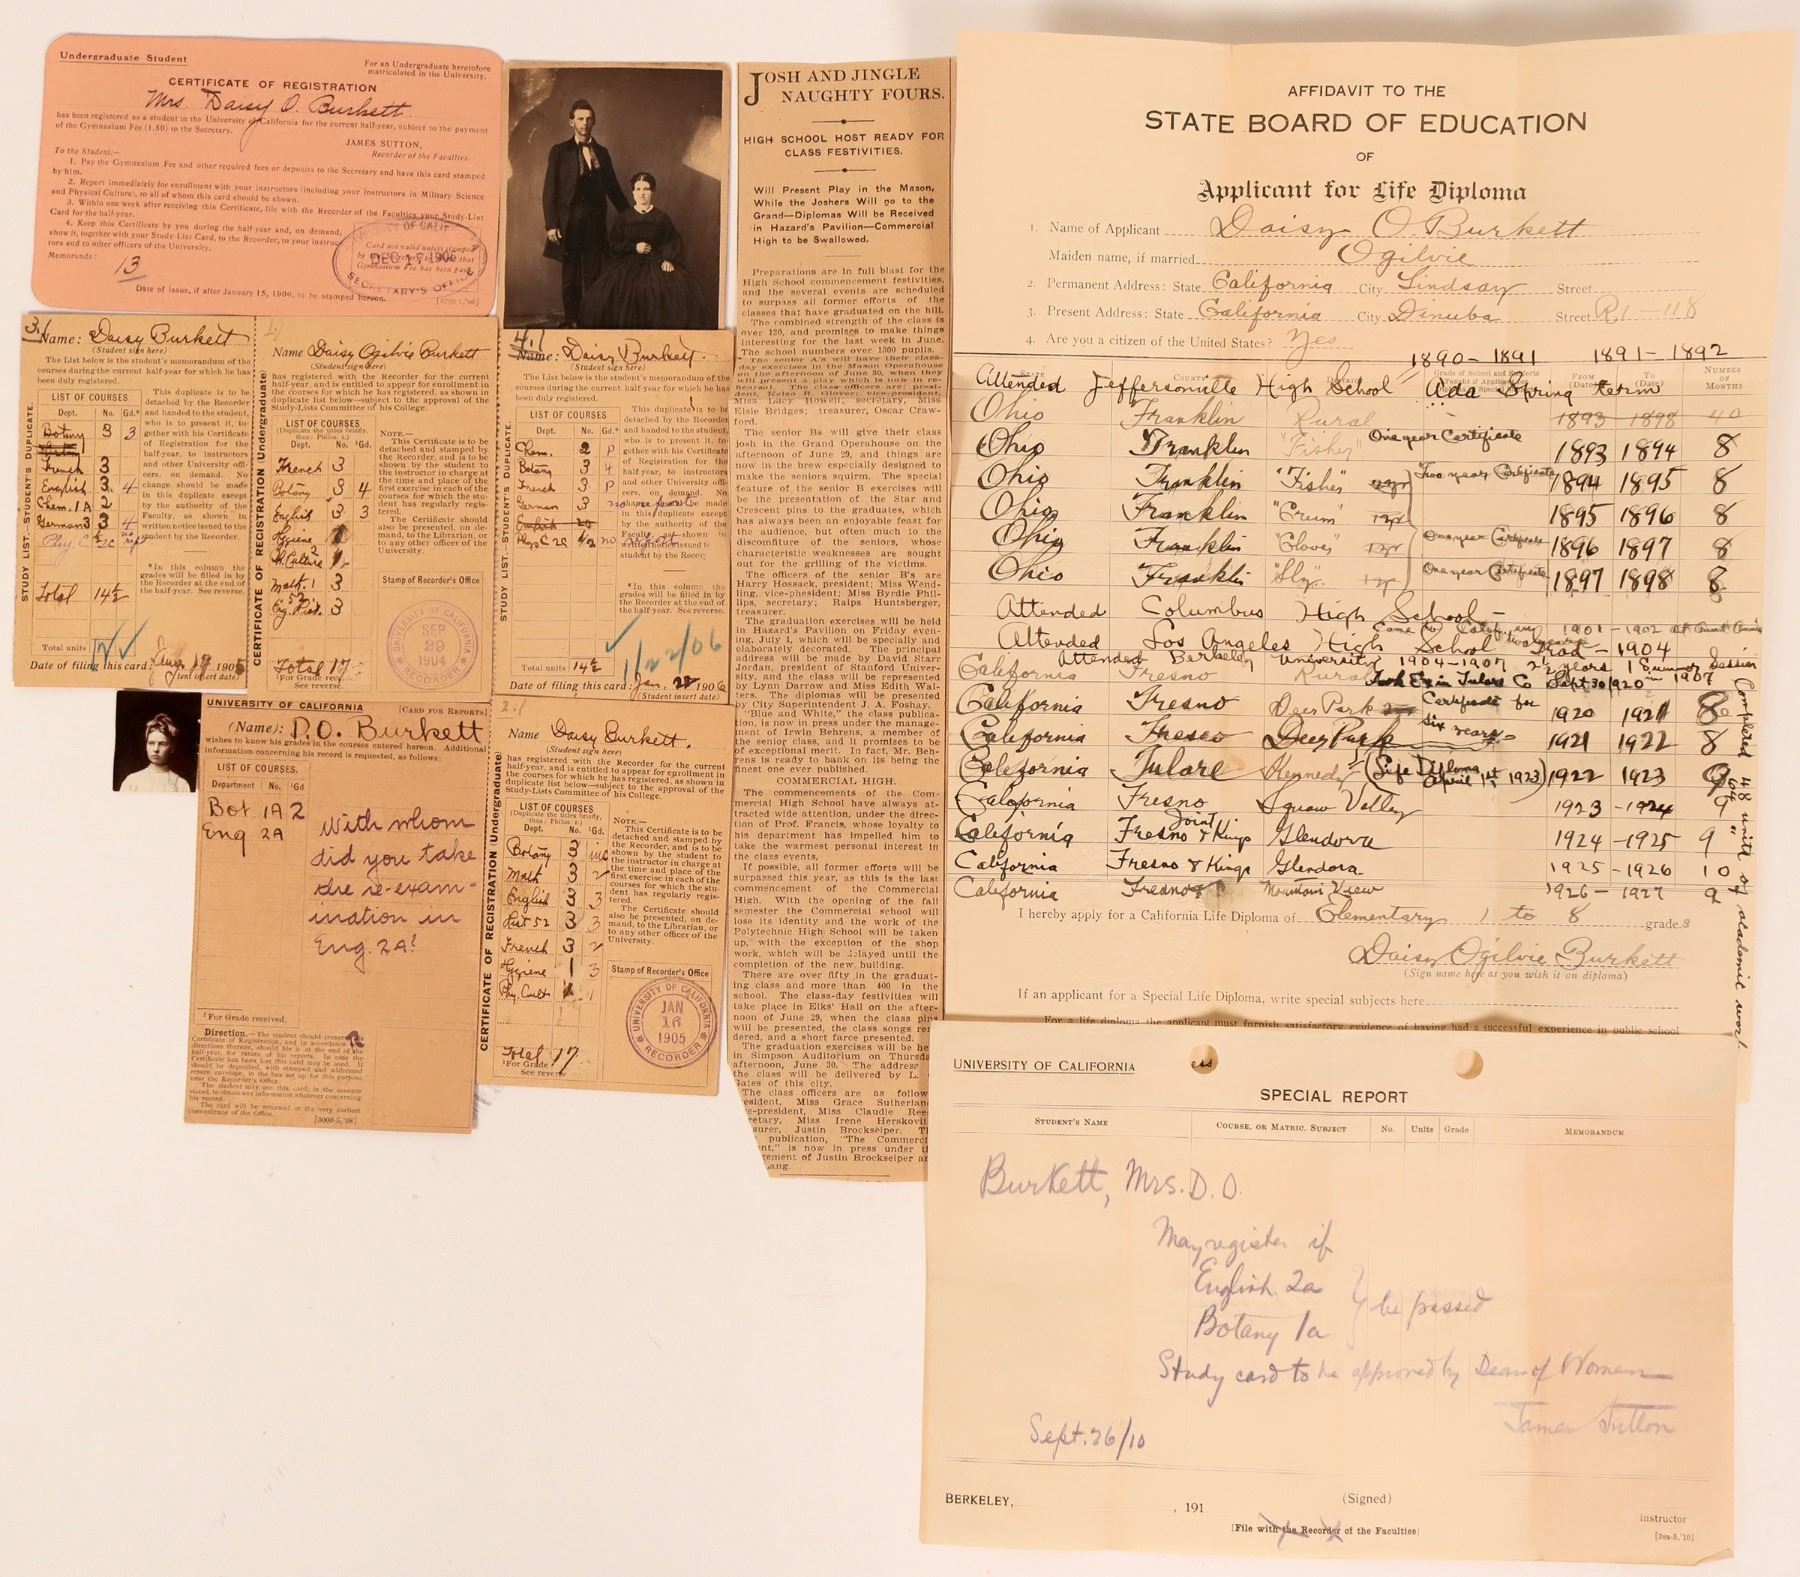 Undergraduate Student
For an Undergraduate heretofore
matriculated in the University.
CERTIFICATE OF REGISTRATION
Mrs. Daisy O. Burkett
has been registered as a student in the University of California for the current half-year, subject to the payment
of the Gymnasium Fee (1.50) to the Secretary.
JAMES SUTTON,
Recorder of the Faculties.
To the Student:—
1. Pay the Gymnasium Fee and other required fees or deposits to the Secretary and have this card stamped
by him.
2. Report immediately for enrollment with your instructors (including your instructors in Military Science
and Physical Culture), to all of whom this card should be shown.
3. Within one week after receiving this Certificate, file with the Recorder of the Faculties your Study-List
Card for the half-year.
4. Keep this Certificate by you during the half-year and, on demand,
show it, together with your Study-List Card, to the Recorder, to your instruc-
tors and to other officers of the University.
Memoranda:
13
Card not valid unless stamped
Gymnasium Fee has been paid
DEC 17 1906
SECRETARY'S OFFICE
Date of issue, if after January 15, 1906, to be stamped hereon.
3.1
Name: Daisy Burkett
(Student sign here)
The List below is the student's memorandum of the
courses during the current half-year for which he has
been duly registered.
STUDY LIST.—STUDENT'S DUPLICATE.
LIST OF COURSES
Dept. No. Gd.*
Botany 3 3
French 3
English 3 4
Chem. 1A 2
German 3 3 4
Total 14½
This duplicate is to be
detached by the Recorder
and handed to the student,
who is to present it, to-
gether with his Certificate
of Registration for the
half-year, to instructors
and other University offi-
cers, on demand. No
change should be made
in this duplicate except
by the authority of the
Faculty, as shown in
written notice issued to the
student by the Recorder.
*In this column the
grades will be filled in by
the Recorder at the end of
the half-year. See reverse.
Total units
Date of filing this card: Aug 17, 1905
(Student insert date)
CERTIFICATE OF REGISTRATION (Undergraduate)
Name Daisy Ogilvie Burkett
(Student sign here)
has registered with the Recorder for the current
half-year, and is entitled to appear for enrollment in
the courses for which he has registered, as shown in
duplicate list below—subject to the approval of the
Study-Lists Committee of his College.
LIST OF COURSES
(Duplicate the titles briefly,
thus: Philos. 2.)
Dept. No. ¹Gd.
French 3
Botany 3 4
English 3 3
Hygiene 1
Ph. Culture 2
Math. 1 3
Eng. Hist. 52 3
Total 17
(For Grade rec.
See reverse.
NOTE.—
This Certificate is to be
detached and stamped by
the Recorder, and is to be
shown by the student to
the instructor in charge at
the time and place of the
first exercise in each of the
courses for which the stu-
dent has regularly regis-
tered.
The Certificate should
also be presented, on de-
mand, to the Librarian, or
to any other officer of the
University.
Stamp of Recorder's Office
UNIVERSITY OF CALIFORNIA
SEP
29
1904
RECORDER
4.1
Name: Daisy Burkett.
(Student sign here)
The List below is the student's memorandum of the
courses during the current half year for which he has
been duly registered.
STUDY LIST.—STUDENT'S DUPLICATE.
LIST OF COURSES
Dept. No. Gd.*
Chem. 2 P
Botany 3 4
French 3 P
German 3 no report
English 20
Phys C 2C ½ no report
This duplicate is to be
detached by the Recorder
*In this column the
grades will be filled in by
the Recorder at the end of
the half year. See reverse.
Total units 14½
1/22/06
Date of filing this card: Jan. 22 1906
(Student insert date)
UNIVERSITY OF CALIFORNIA [CARD FOR REPORTS]
(Name): D.O. Burkett
wishes to know his grades in the courses entered hereon. Additional
information concerning his record is requested, as follows:
LIST OF COURSES.
Department No. ¹Gd
Bot 1A 2
Eng 2A
With whom
did you take
the re-exam-
ination in
Eng. 2A?
¹ For Grade received.
Direction.—The student should present
Certificate of Registration, and in accordance
directions therein, should file it at the end of the
half-year, for return of his reports. In case the
Certificate has been lost this card may be used. It
should be deposited, with stamped and addressed
return envelope, in the box set up for this purpose
near the Recorder's Office.
The student may use this card, in the manner
stated, to obtain any information whatever concerning
his record.
The card will be returned at the very earliest
convenience of the Office.
[3000-5,'08]
2.1
CERTIFICATE OF REGISTRATION (Undergraduate)
Name Daisy Burkett.
(Student sign here)
has registered with the Recorder for the current
half-year, and is entitled to appear for enrollment in
the courses for which he has registered, as shown in
duplicate list below—subject to the approval of the
Study-Lists Committee of his College.
LIST OF COURSES
(Duplicate the titles briefly,
thus: Philos. 2.)
Dept. No. ¹Gd.
Botany 3 inc
Math 3 2
English 3 3
Hist 52 3 3
French 3 2
Hygiene 1 3
Phy. Cult 1
Total 17
¹For Grade
See reverse
NOTE.—
This Certificate is to be
detached and stamped by
the Recorder, and is to be
shown by the student to
the instructor in charge at
the time and place of the
first exercise in each of the
courses for which the stu-
dent has regularly regis-
tered.
The Certificate should
also be presented, on de-
mand, to the Librarian, or
to any other officer of the
University.
Stamp of Recorder's Office
UNIVERSITY OF CALIFORNIA
JAN
16
1905
RECORDER
JOSH AND JINGLE
NAUGHTY FOURS.
HIGH SCHOOL HOST READY FOR
CLASS FESTIVITIES.
Will Present Play in the Mason,
While the Joshers Will go to the
Grand—Diplomas Will be Received
in Hazard's Pavilion—Commercial
High to be Swallowed.
Preparations are in full blast for the
High School commencement festivities,
and the several events are scheduled
to surpass all former efforts of the
classes that have graduated on the hill.
The combined strength of the class is
over 120, and promises to make things
interesting for the last week in June.
The school numbers over 1300 pupils.
The senior A's will have their class-
day exercises in the Mason Operahouse
on the afternoon of June 30, when they
will present a play which is now in re-
hearsal. The class officers are: presi-
dent, Kelso B. Glover; vice-president,
Miss Lucy Howell; secretary, Miss
Elsie Bridges; treasurer, Oscar Craw-
ford.
The senior B's will give their class
josh in the Grand Operahouse on the
afternoon of June 29, and things are
now in the brew especially designed to
make the seniors squirm. The special
feature of the senior B exercises will
be the presentation of the Star and
Crescent pins to the graduates, which
has always been an enjoyable feast for
the audience, but often much to the
discomfiture of the seniors, whose
characteristic weaknesses are sought
out for the grilling of the victims.
The officers of the senior B's are
Harry Hossack, president; Miss Wend-
ling, vice-phesident; Miss Byrdie Phil-
lips, secretary; Ralps Huntsberger,
treasurer.
The graduation exercises will be held
in Hazard's Pavilion on Friday even-
ing, July 1, which will be specially and
elaborately decorated. The principal
address will be made by David Starr
Jordan, president of Stanford Univer-
sity, and the class will be represented
by Lynn Darrow and Miss Edith Wal-
ters. The diplomas will be presented
by City Superintendent J. A. Foshay.
"Blue and White," the class publica-
tion, is now in press under the manage-
ment of Irwin Behrens, a member of
the senior class, and it promises to be
of exceptional merit. In fact, Mr. Beh-
rens is ready to bank on its being the
finest one ever published.
COMMERCIAL HIGH.
The commencements of the Com-
mercial High School have always at-
tracted wide attention, under the direc-
tion of Prof. Francis, whose loyalty to
his department has impelled him to
take the warmest personal interest in
the class events.
If possible, all former efforts will be
surpassed this year, as this is the last
commencement of the Commercial
High. With the opening of the fall
semester the Commercial school will
lose its identity and the work of the
Polytechnic High School will be taken
up, with the exception of the shop
work, which will be delayed until the
completion of the new building.
There are over fifty in the graduat-
ing class and more than 400 in the
school. The class-day festivities will
take place in Elks' Hall on the after-
noon of June 29, when the class pins
will be presented, the class songs ren-
dered, and a short farce presented.
The graduation exercises will be he
in Simpson Auditorium on Thursda
afternoon, June 30. The address
the class will be delivered by L.
Gates of this city.
The class officers are as follow
esident, Miss Grace Sutherlan
e-president, Miss Claudie Ree
etary, Miss Irene Herskovit
surer, Justin Brockseiper. T
publication, "The Commerc
nt," is now in press under t
ement of Justin Brockseiper an
ang.
AFFIDAVIT TO THE
STATE BOARD OF EDUCATION
OF
Applicant for Life Diploma
1. Name of Applicant Daisy O Burkett
Maiden name, if married Ogilvie
2. Permanent Address: State California City Lindsay Street
3. Present Address: State California City Dinuba Street R1-118
4. Are you a citizen of the United States? Yes
1890-1891 1891-1892
STATE COUNTY FROM (Date) TO (Date) NUMBER OF MONTHS
Attended Jeffersonville High School Ada Spring term
Ohio Franklin Rural 1893 1898 40
Ohio Franklin "Fisher" One year Certificate 1893 1894 8
Ohio Franklin "Fisher" Two years Certificate 1894 1895 8
Ohio Franklin "Crum" 1895 1896 8
Ohio Franklin "Glover" One year Certificate 1896 1897 8
Ohio Franklin "Sly" One year Certificate 1897 1898 8
Attended Columbus High School—
Attended Los Angeles High School Grad—1904
Attended Berkeley University 1904-1907 2½ years 1 Summer Session in 1907
California Fresno Rural Took Ex in Tulare Co Sept 30 1920
California Fresno Deer Park Certificate for six years 1920 1921 8
California Fresno Deer Park 1921 1922 8
California Tulare Kennedy (Life Diploma April 1st 1923) 1922 1923 9
California Fresno Squaw Valley 1923-1924 9
California Fresno & Kings Joint Glendora 1924-1925 9
California Fresno & Kings Glendora 1925-1926 10
California Fresno Mountain View 1926-1927 9
Completed 48 units of academic work
I hereby apply for a California Life Diploma of Elementary 1 to 8 grades
Daisy Ogilvie Burkett
(Sign name here as you wish it on diploma)
If an applicant for a Special Life Diploma, write special subjects here
For a life diploma the applicant must furnish satisfactory evidence of having had a successful experience in public school
UNIVERSITY OF CALIFORNIA
SPECIAL REPORT
STUDENT'S NAME COURSE, OR MATRIC. SUBJECT No. Units Grade MEMORANDUM
Burkett, Mrs. D. O.
May register if
English 2a
Botany 1a } be passed
Study card to be approved by Dean of Women
James Sutton
Sept. 26/10
BERKELEY, , 191
(Signed)
Instructor
[File with the Recorder of the Faculties]
[3m-5,'10]